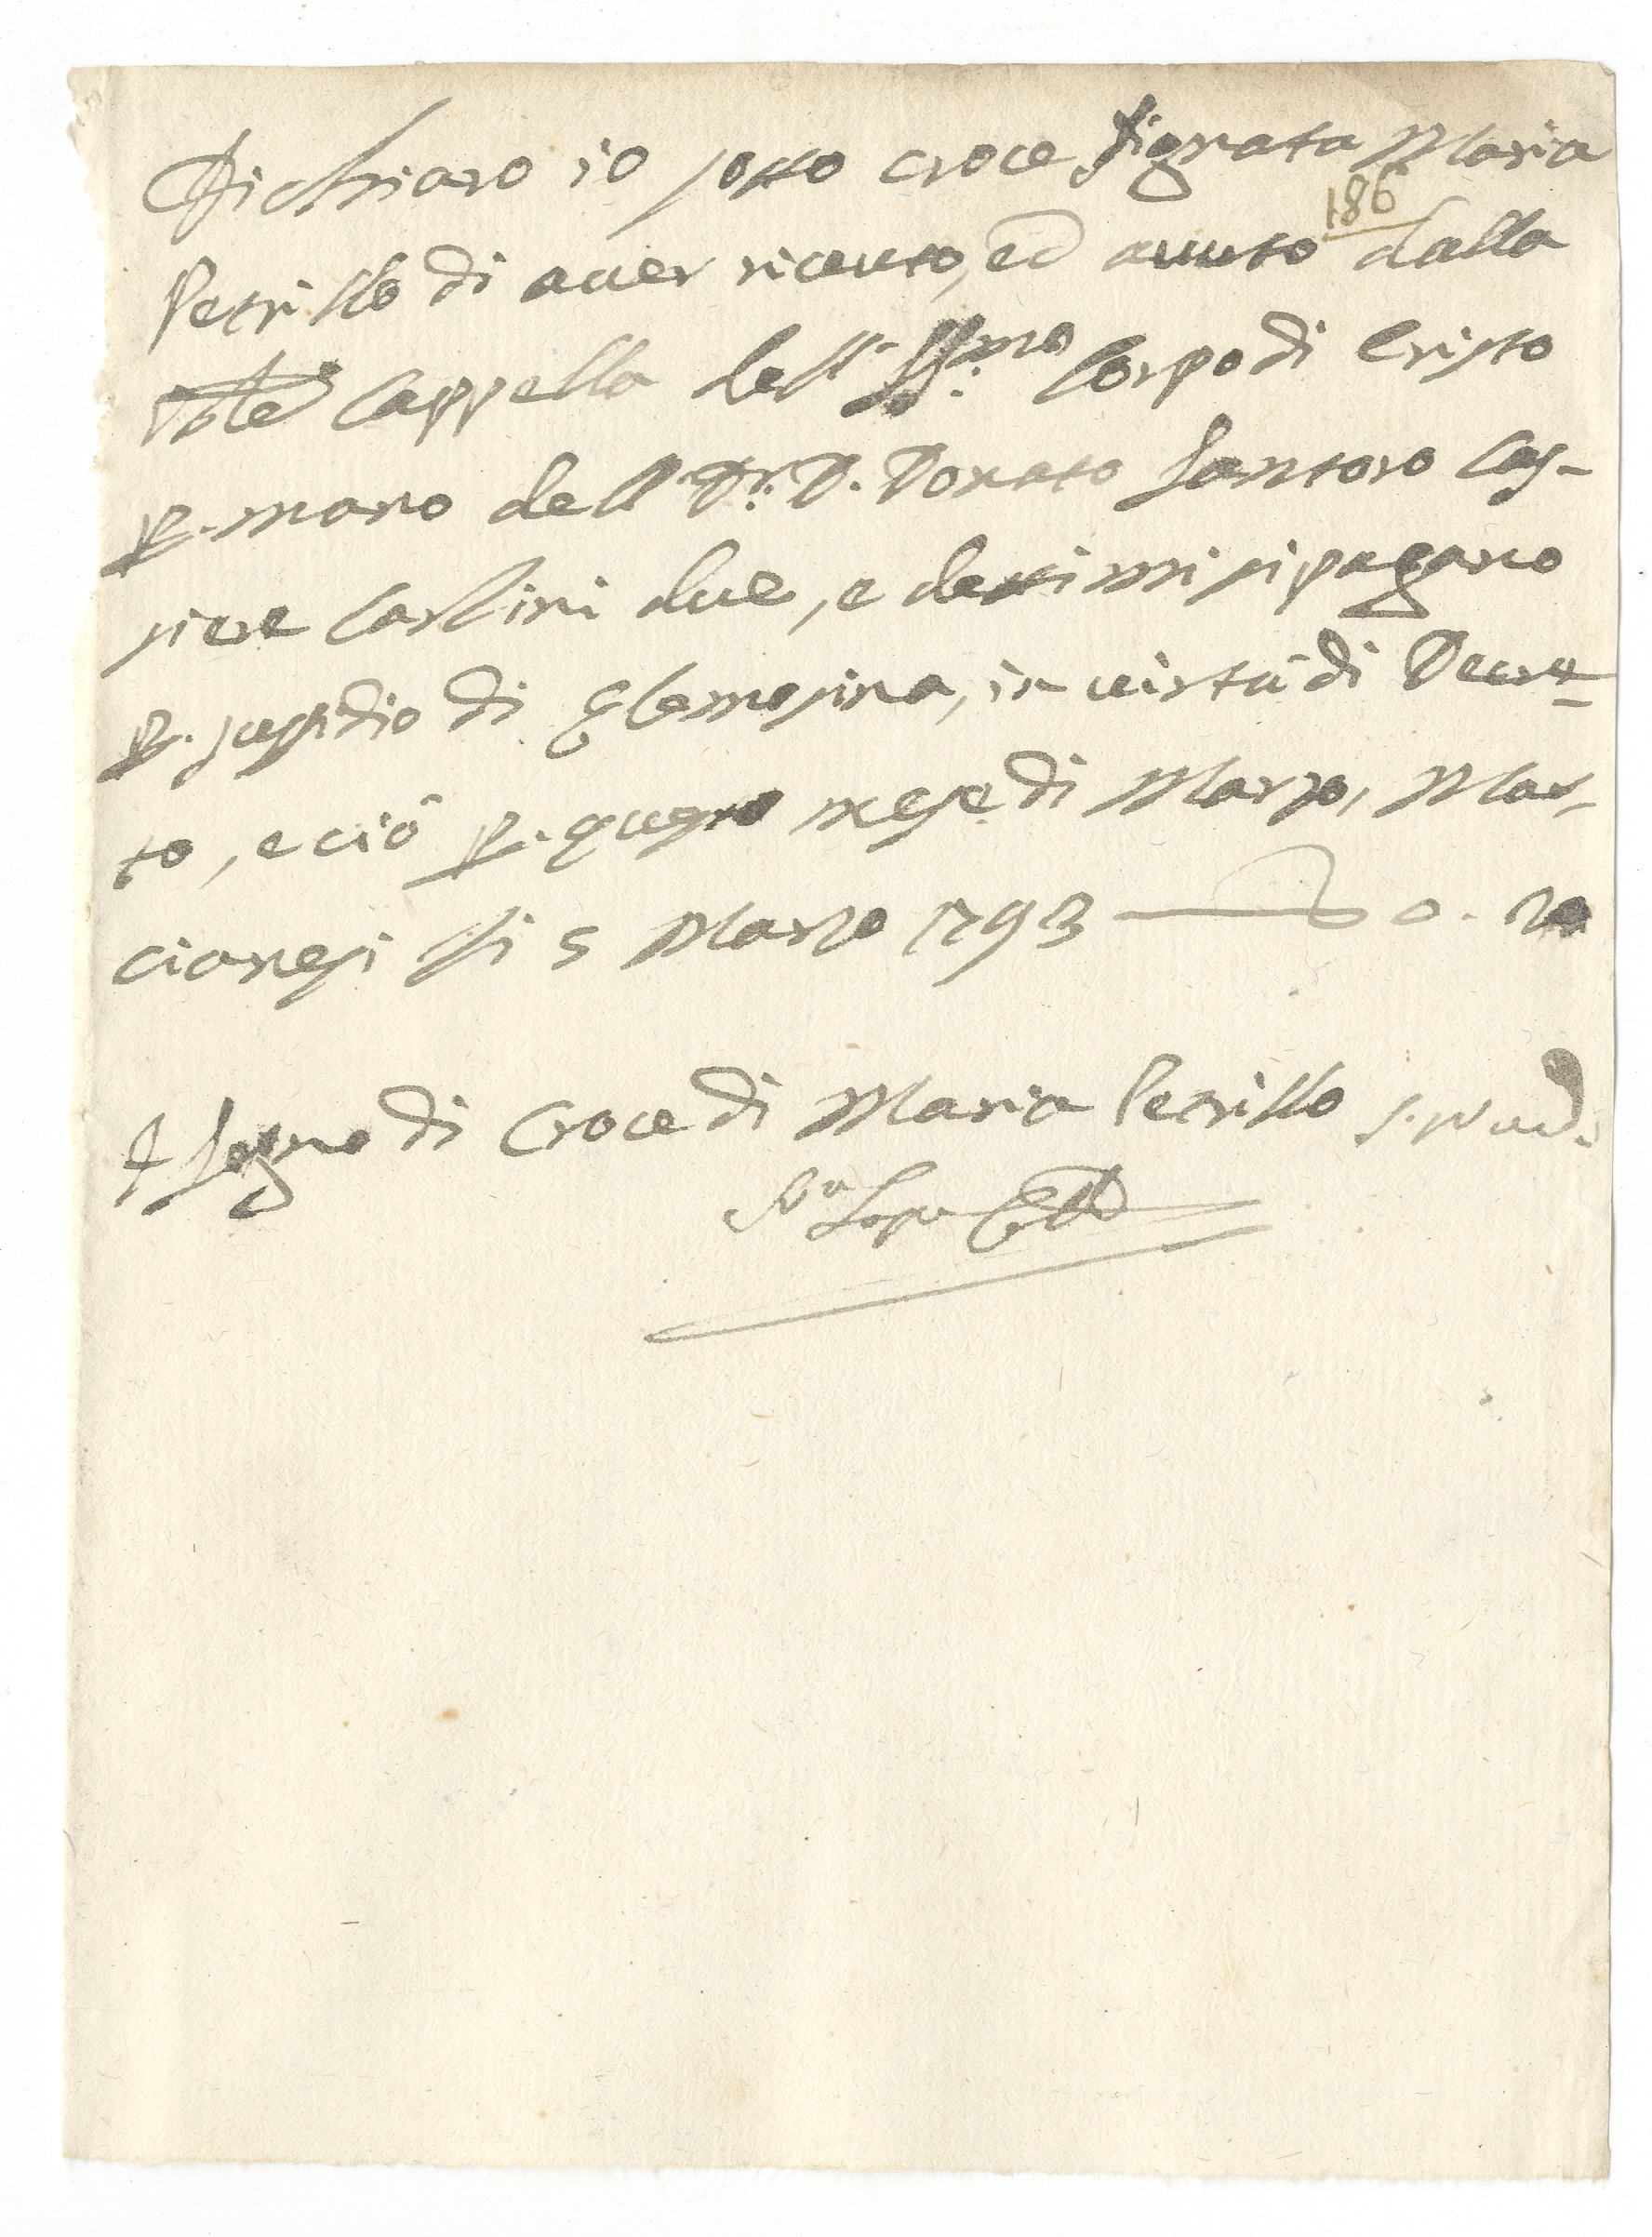 Dichiaro io sotto croce signata Maria
186
Petrillo di aver riceuto, ed avuto dalla
Vble Cappella dell' SS.mo Corpo di Cristo
p. mano dell' Dr. D. Donato Santoro Cas-
siere Carlini due, e detti mi si pagano
p. sussidio di Elemosina, in virtù di Decre-
to, e ciò p. questo mese di Marzo, Mar-
cianesi li 5 Marzo 1793 — D 0. 20
+ Segno di Croce di Maria Petrillo